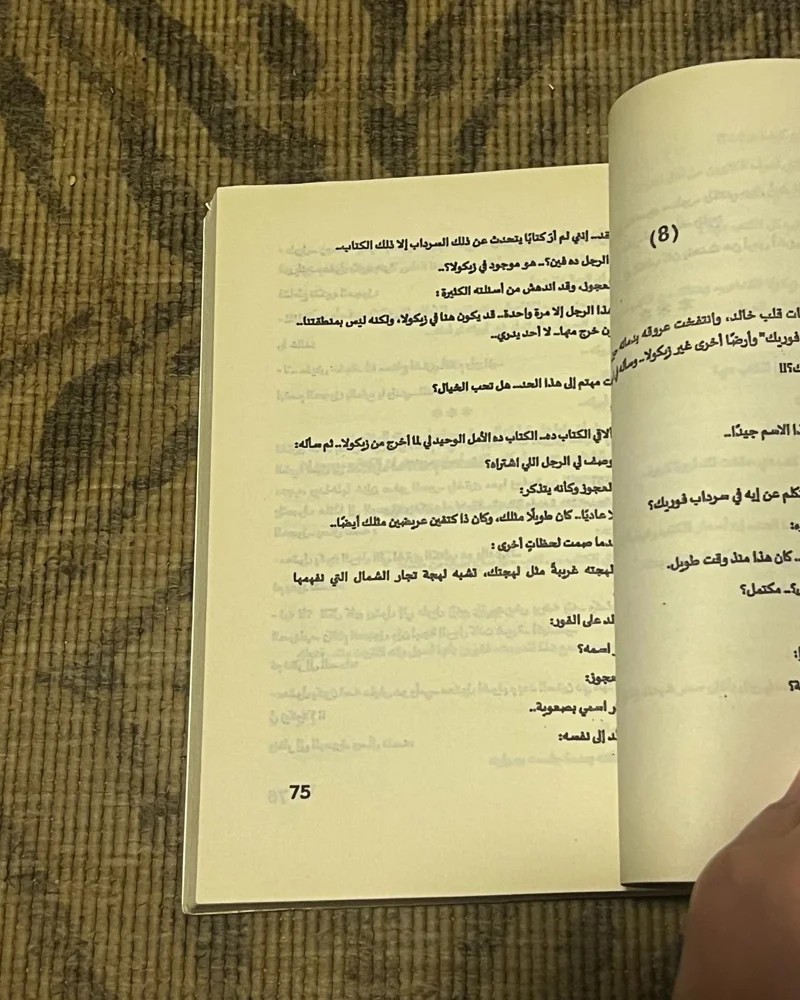 (8)
ات قلب خالد، وانتفخت عروقه
فوريك" وأرضًا أخرى غير زيكولا.. وسأله
ك؟!!
ذا الاسم جيدًا..
تكلم عن إيه في سرداب فوريك؟
.. كان هذا منذ وقت طويل.
؟.. مكتمل؟
قد.. إنني لم أرَ كتابًا يتحدث عن ذلك السرداب إلا ذلك الكتاب..
الرجل ده فين؟.. هو موجود في زيكولا؟..
لعجوز، وقد اندهش من أسئلته الكثيرة:
هذا الرجل إلا مرة واحدة.. قد يكون هنا في زيكولا، ولكنه ليس بمنطقتنا..
ن خرج منها.. لا أحد يدري..
ت مهتم إلى هذا الحد.. هل تحب الخيال؟
ألاقي الكتاب ده.. الكتاب ده الأمل الوحيد لي لما أخرج من زيكولا.. ثم سأله:
وصف لي الرجل اللي اشتراه؟
لعجوز وكأنه يتذكر:
لا عاديًا.. كان طويلًا مثلك، وكان ذا كتفين عريضين مثلك أيضًا..
دما صمت لحظاتٍ أخرى:
لهجته غريبةً مثل لهجتك، تشبه لهجة تجار الشمال التي نفهمها
لد على الفور:
اسمه؟
عجوز:
ر اسمي بصعوبة..
لد إلى نفسه:
75